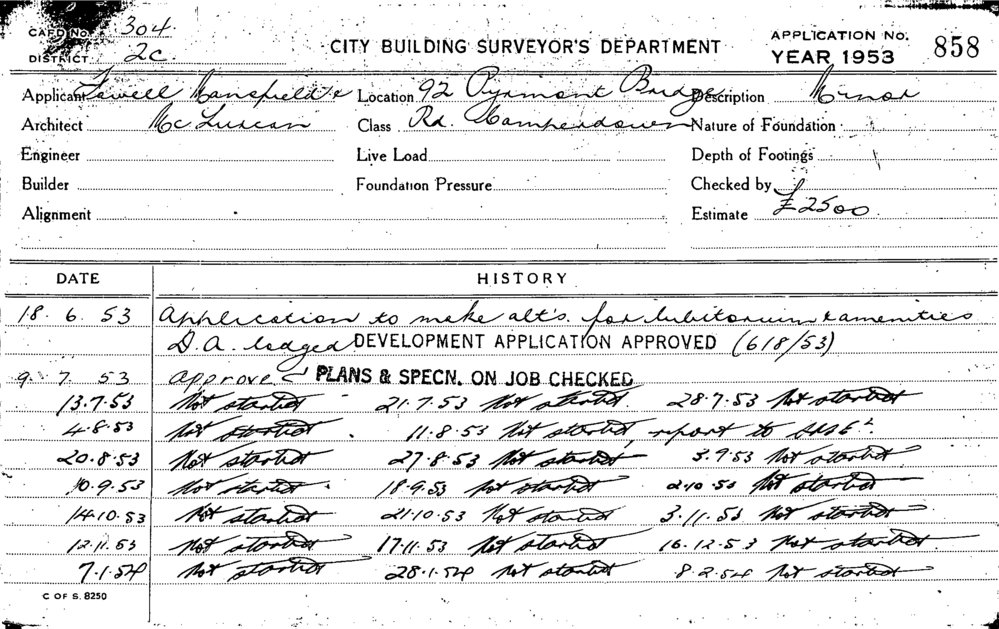 CARD No. 304
DISTRICT 2C.
CITY BUILDING SURVEYOR'S DEPARTMENT
APPLICATION No. 858
YEAR 1953
Applicant Fowell Mansfield & Location 92 Pyrmont Bridge Description Minor
Architect McLurcan Class Rd. Camperdown Nature of Foundation
Engineer Live Load Depth of Footings
Builder Foundation Pressure Checked by
Alignment Estimate £2500
DATE HISTORY
18. 6. 53 Application to make alt's. for & amenities
D.A. lodged DEVELOPMENT APPLICATION APPROVED (618/53)
9. 7. 53 approve PLANS & SPECN. ON JOB CHECKED
13.7.53 Not started 21.7.53 Not started. 28.7.53 Not started
4.8.53 Not started. 11.8.53 Not started, report to
20.8.53 Not started 27.8.53 Not started 3.9.53 Not started
10.9.53 Not started. 18.9.53 Not started 2.10.53 Not started
14.10.53 Not started 21.10.53 Not started 3.11.53 Not started
12.11.53 Not started 17.11.53 Not started 16.12.53 Not started.
7.1.54 Not started 28.1.54 Not started 8.2.54 Not started
C OF S. 8250